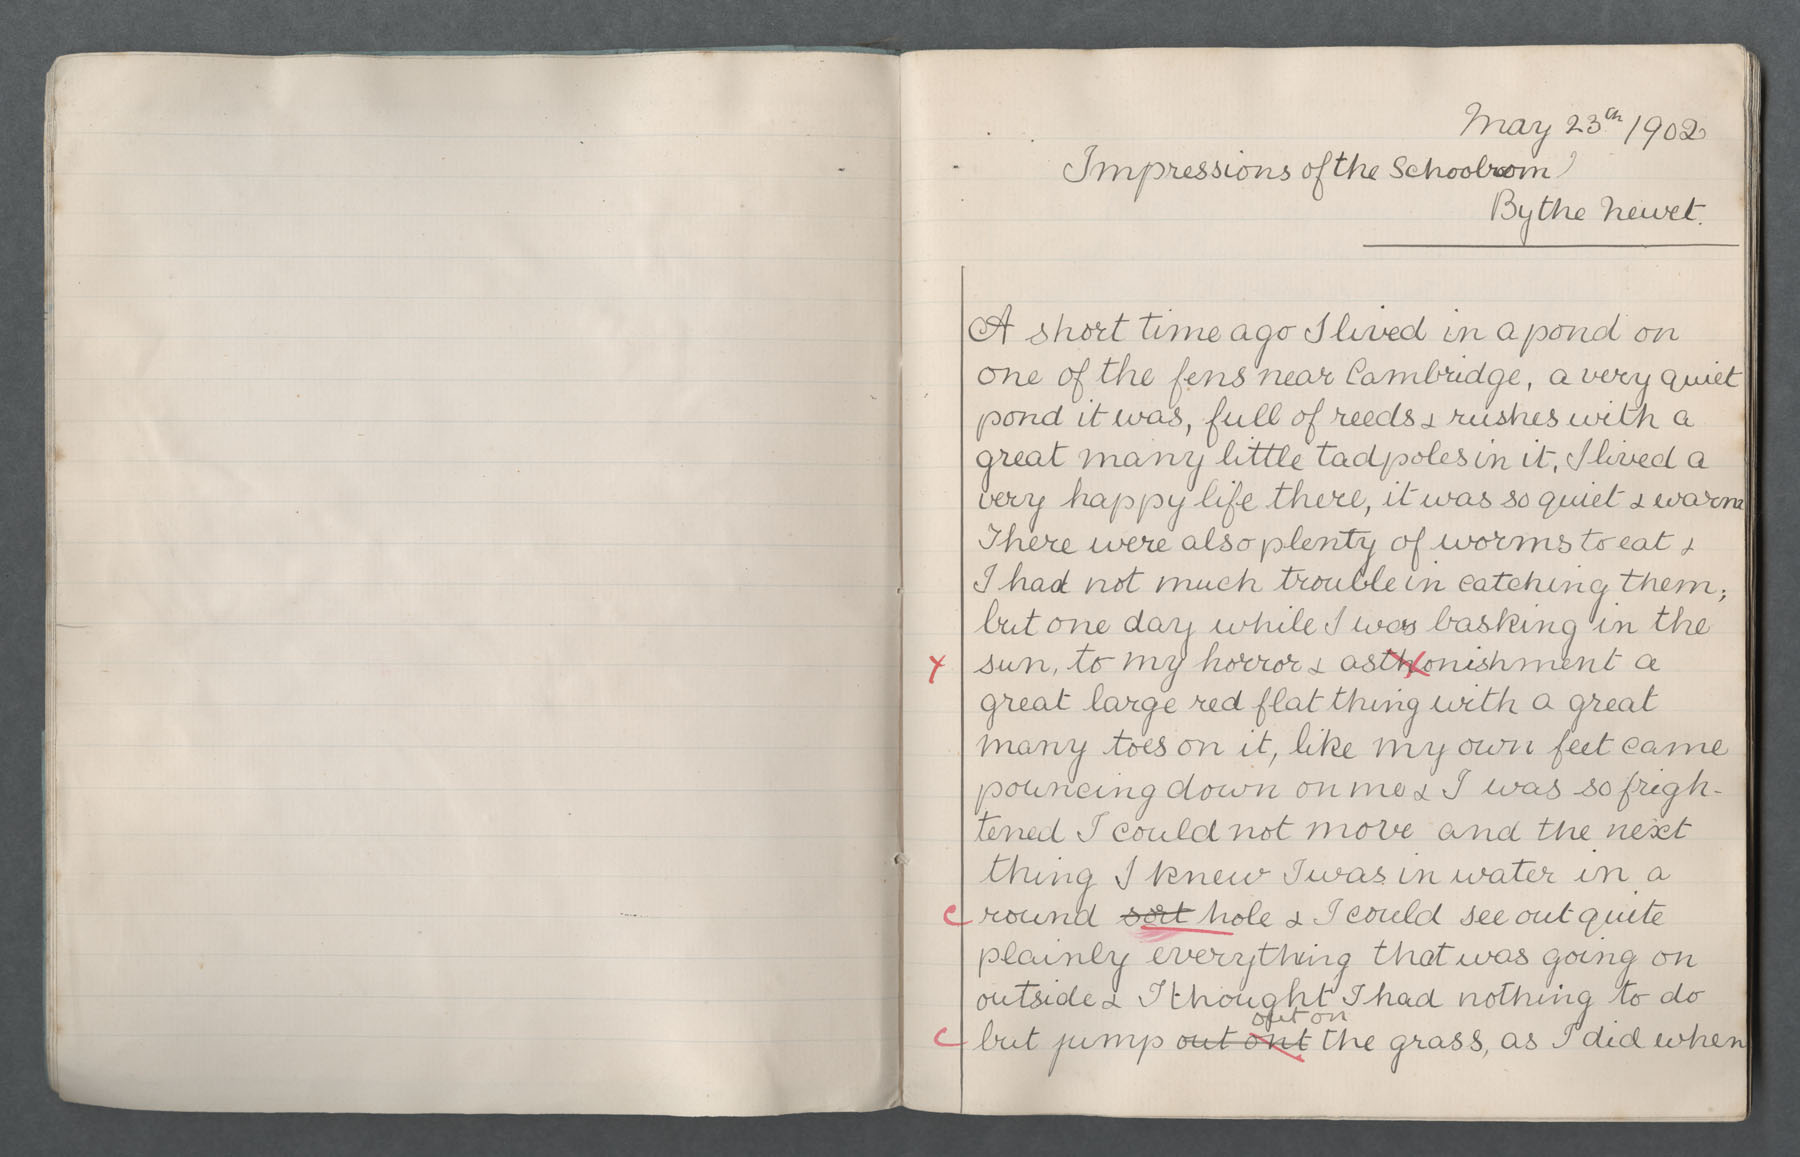 May 23th 1902
Impressions of the Schoolroom
By the Newet.
A short time ago I lived in a pond on
one of the fens near Cambridge, a very quiet
pond it was, full of reeds & rushes with a
great many little tadpoles in it, I lived a
very happy life there, it was so quiet & warm
There were also plenty of worms to eat &
I had not much trouble in catching them;
but one day while I was basking in the
x sun, to my horror & asthonishment a
great large red flat thing with a great
many toes on it, like my own feet came
pouncing down on me & I was so frigh-
tened I could not move and the next
thing I knew I was in water in a
c round sort hole & I could see out quite
plainly everything that was going on
outside & I thought I had nothing to do
out on
c but jump out ont the grass, as I did when